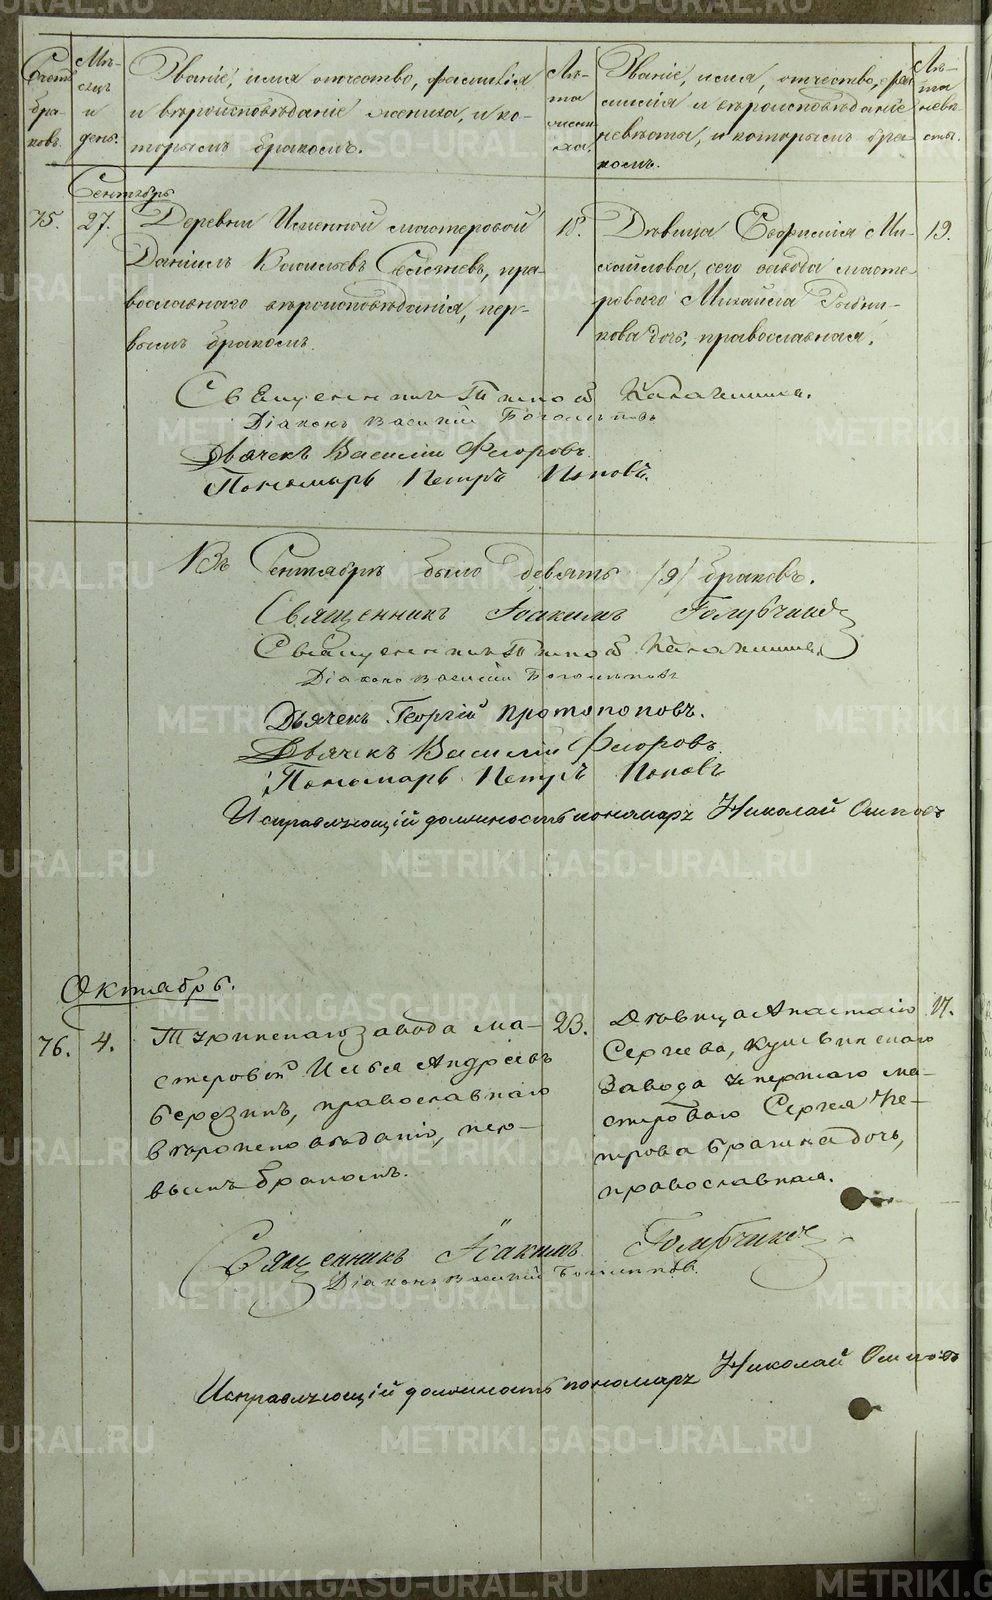 METRIKI.GASO-URAL.RU
Счетъ браковъ.
Мѣсяцъ и день.
Званіе, имя отчество, фамилія
и вѣроисповѣданіе жениха, и ко-
торымъ бракомъ.
Лѣта жениха.
Званіе, имя, отчество, фа-
милія и вѣроисповѣданіе
невѣсты, и которымъ бра-
комъ.
Лѣта невѣсты.
Сентябрь
75. 27.
Деревни Именной мастеровой
Даніилъ Васильевъ пра-
вославнаго вѣроисповѣданія, пер-
вымъ бракомъ.
18.
Дѣвица Евфимія Ми-
хайлова, сего завода масте-
роваго Михайла Рыбни-
кова дочь, православная.
19.
Священникъ Тимофей
Діаконъ Василій Боголѣповъ
Дьячекъ Василій Флоровъ.
Пономарь Петръ Поповъ.
Въ Сентябрѣ было девять /9/ браковъ.
Священникъ Іоакимъ Голубчиковъ
Священникъ Тимофей
Діаконъ Василій Боголѣповъ
Дьячекъ Георгій Протопоповъ.
Дьячекъ Василій Флоровъ.
Пономарь Петръ Поповъ
Исправляющій должность пономаря Николай Осиповъ
Октябрь.
76. 4.
Туринскаго завода ма-
стеровой Илья Андреевъ
Березинъ, православнаго
вѣроисповѣданія, пер-
вымъ бракомъ.
23.
Дѣвица Анастасія
Сергѣева, Кушвинскаго
завода умершаго ма-
стероваго Сергея Пе-
трова дочь,
православная.
17.
Священникъ Іоакимъ Голубчиковъ
Діаконъ Василій Боголѣповъ.
Исправляющій должность пономаря Николай Осиповъ